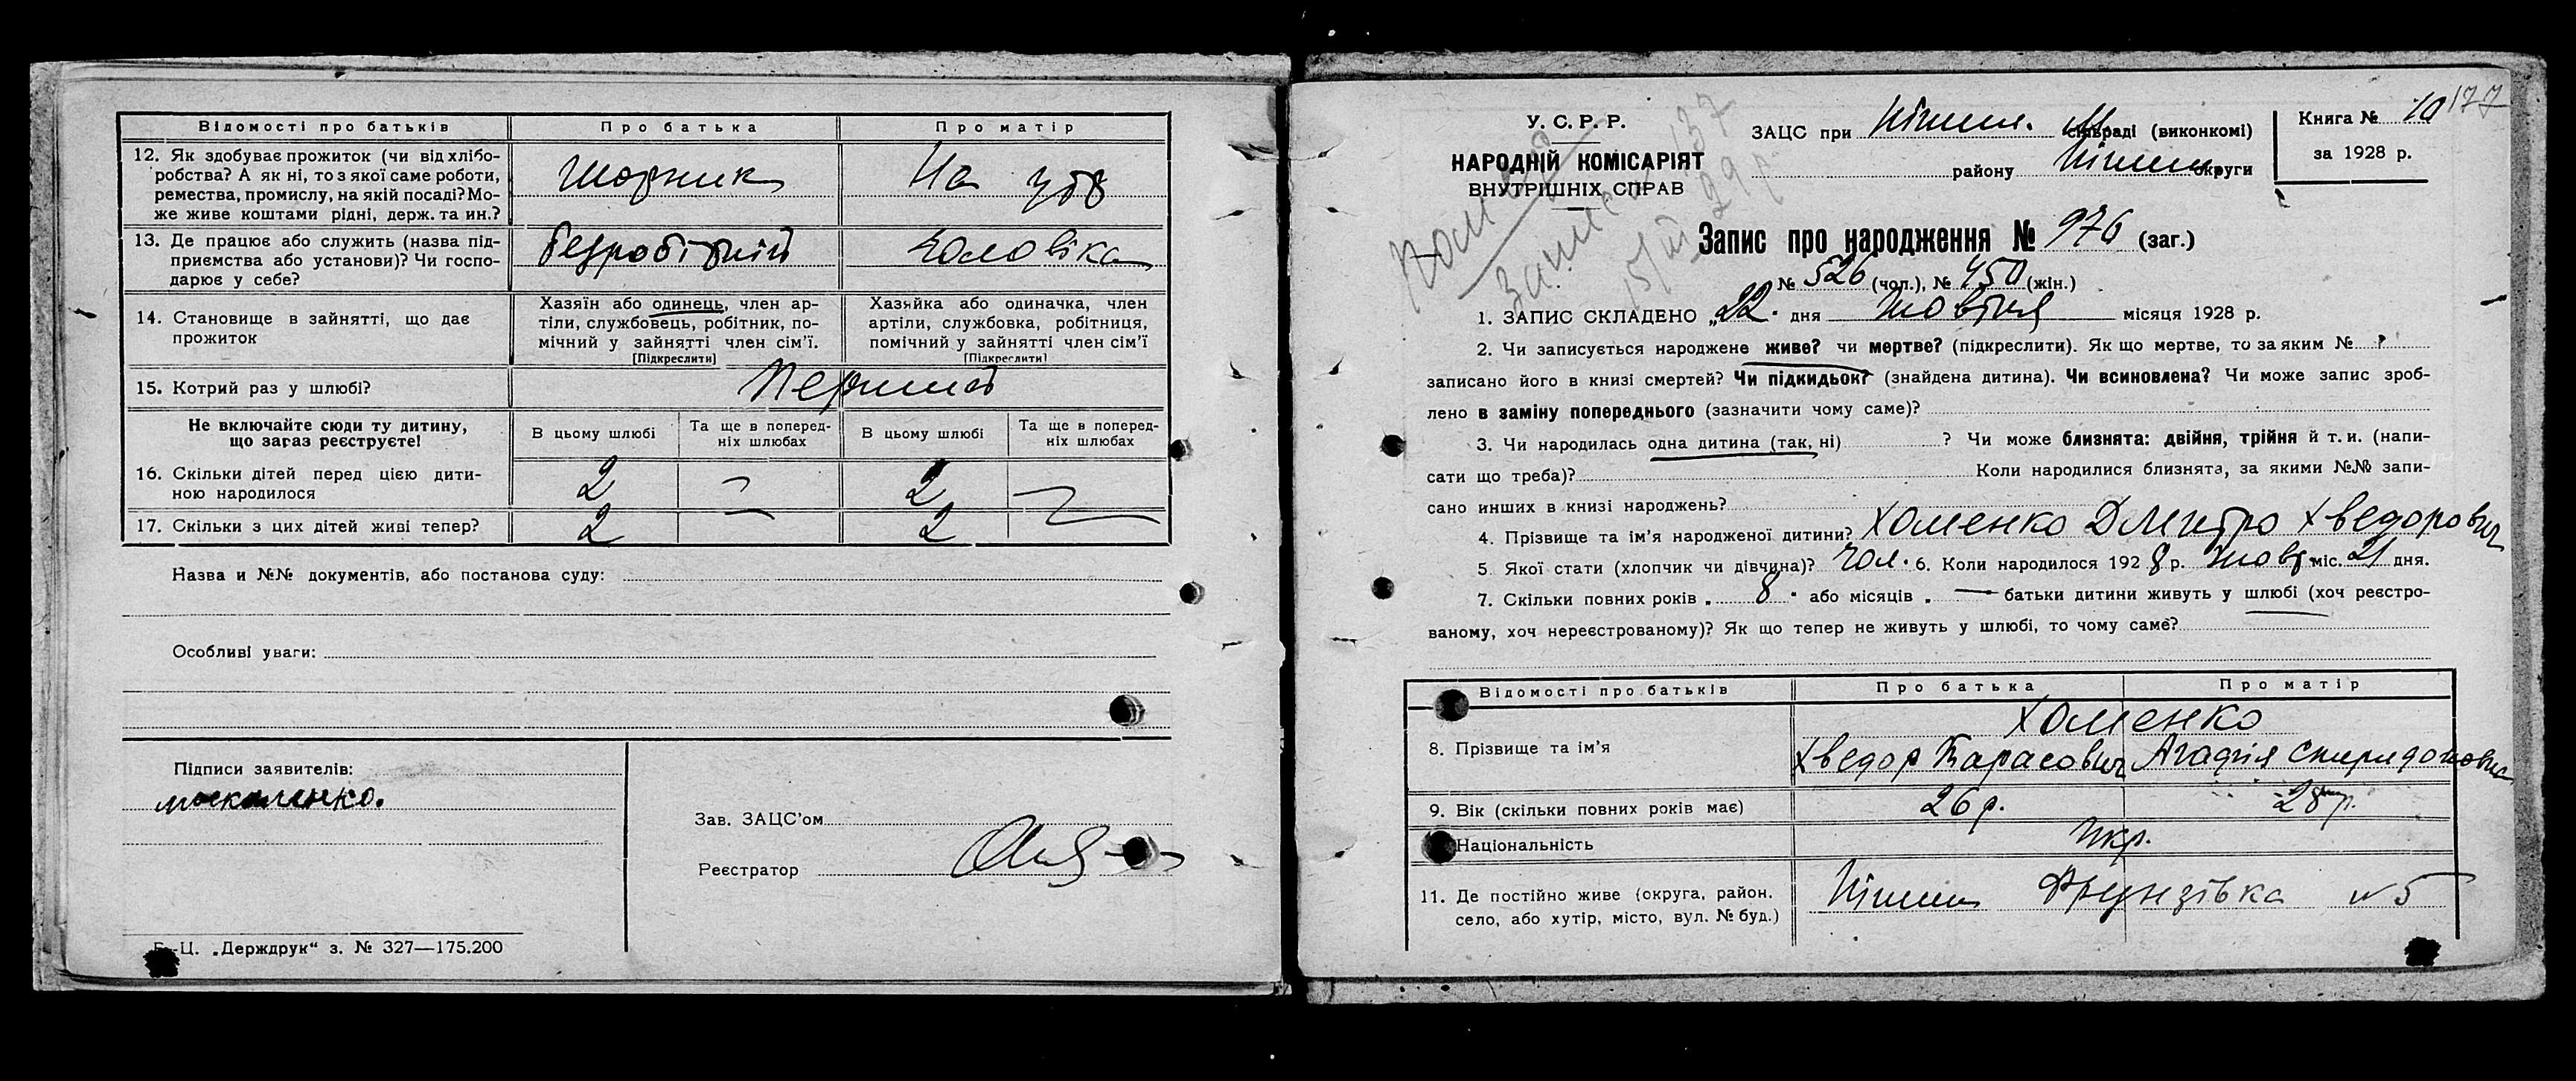 Відомості про батьків Про батька Про матір
12. Як здобуває прожиток (чи від хлібо-
робства? А як ні, то з якої саме роботи,
ремества, промислу, на якій посаді? Мо-
же живе коштами рідні, держ. та ин.?
Шорник На утр
13. Де працює або служить (назва під-
приємства або установи)? Чи госпо-
дарює у себе?
безробітній чоловіка
14. Становище в зайнятті, що дає
прожиток
Хазяїн або одинець, член ар-
тіли, службовець, робітник, по-
мічний у зайнятті член сім'ї.
[Підкреслити]
Хазяйка або одиначка, член
артіли, службовка, робітниця,
помічний у зайнятті член сім'ї
[Підкреслити]
15. Котрий раз у шлюбі? Перший
Не включайте сюди ту дитину,
що зараз реєструєте!
В цьому шлюбі
Та ще в поперед-
ніх шлюбах
В цьому шлюбі
Та ще в поперед-
ніх шлюбах
16. Скільки дітей перед цією дити-
ною народилося
2 — 2 —
17. Скільки з цих дітей живі тепер? 2 — 2 —
Назва и №№ документів, або постанова суду:
Особливі уваги:
Підписи заявителів:
Москаленко.
Зав. ЗАЦС'ом
Реєстратор
Ц. „Держдрук“ з. № 327—175.200
У. С. Р. Р.
НАРОДНІЙ КОМІСАРІЯТ
ВНУТРІШНІХ СПРАВ
ЗАЦС при Ніжин. М. сільраді (виконкомі)
району Ніжин округи
Книга № 10
за 1928 р.
177
Запис про народження № 976 (заг.)
№ 526 (чол.), № 450 (жін.)
1. ЗАПИС СКЛАДЕНО „22“ дня Жовтня місяця 1928 р.
2. Чи записується народжене живе? чи мертве? (підкреслити). Як що мертве, то за яким №
записано його в книзі смертей? Чи підкидьок? (знайдена дитина). Чи всиновлена? Чи може запис зроб-
лено в заміну попереднього (зазначити чому саме)?
3. Чи народилась одна дитина (так, ні) ? Чи може близнята: двійня, трійня й т. и. (напи-
сати що треба)? Коли народилися близнята, за якими №№ запи-
сано инших в книзі народжень?
4. Прізвище та ім'я народженої дитини? Хоменко Дмитро Хведорович
5. Якої стати (хлопчик чи дівчина)? чол. 6. Коли народилося 1928 р. жовт міс. 21 дня.
7. Скільки повних років „ 8 “ або місяців „ — батьки дитини живуть у шлюбі (хоч реєстро-
ваному, хоч нереєстрованому)? Як що тепер не живуть у шлюбі, то чому саме?
Відомості про батьків Про батька Про матір
Хоменко
8. Прізвище та ім'я Хведор Тарасович Агафія Спиридоновна
9. Вік (скільки повних років має) 26 р. 28 р.
Національність Укр.
11. Де постійно живе (округа, район.
село, або хутір, місто, вул. № буд.)
Ніжин Фрунзівка № 5